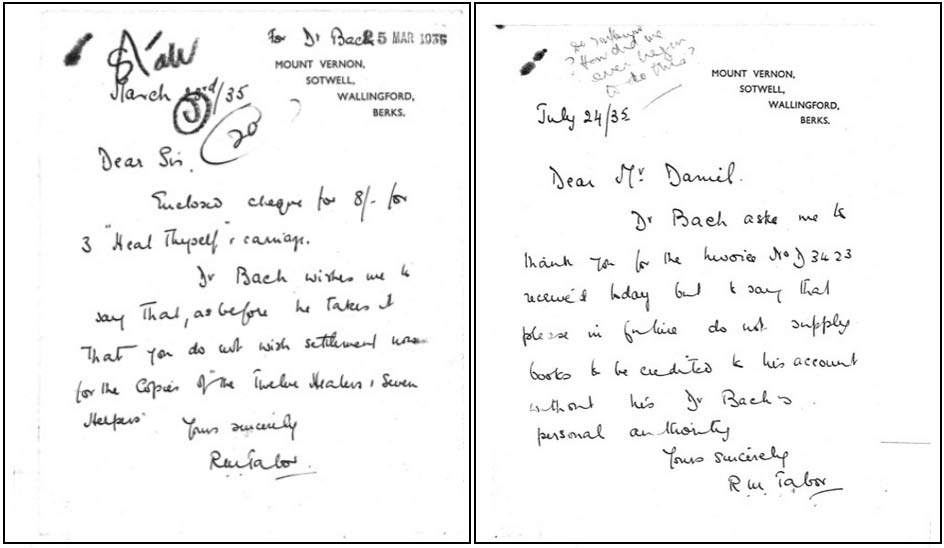 For Dr Bach 25 MAR 1935
MOUNT VERNON,
SOTWELL,
WALLINGFORD,
BERKS.
March 3rd/35
20
Dear Sir,
Enclosed cheque for 8/- for
3 "Heal Thyself" & carriage.
Dr Bach wishes me to
say that, as before he takes it
that you do not wish settlement now
for the Copies of the Twelve Healers & Seven
Helpers
Yours sincerely
R.M. Tabor.
? How did we
ever begin
to do this?
MOUNT VERNON,
SOTWELL,
WALLINGFORD,
BERKS.
July 24/35
Dear Mr Daniel.
Dr Bach asks me to
thank you for the Invoice No D 3423
received today but to say that
please in future do not supply
books to be credited to his account
without his Dr Bach's
personal authority
Yours sincerely
R.M. Tabor